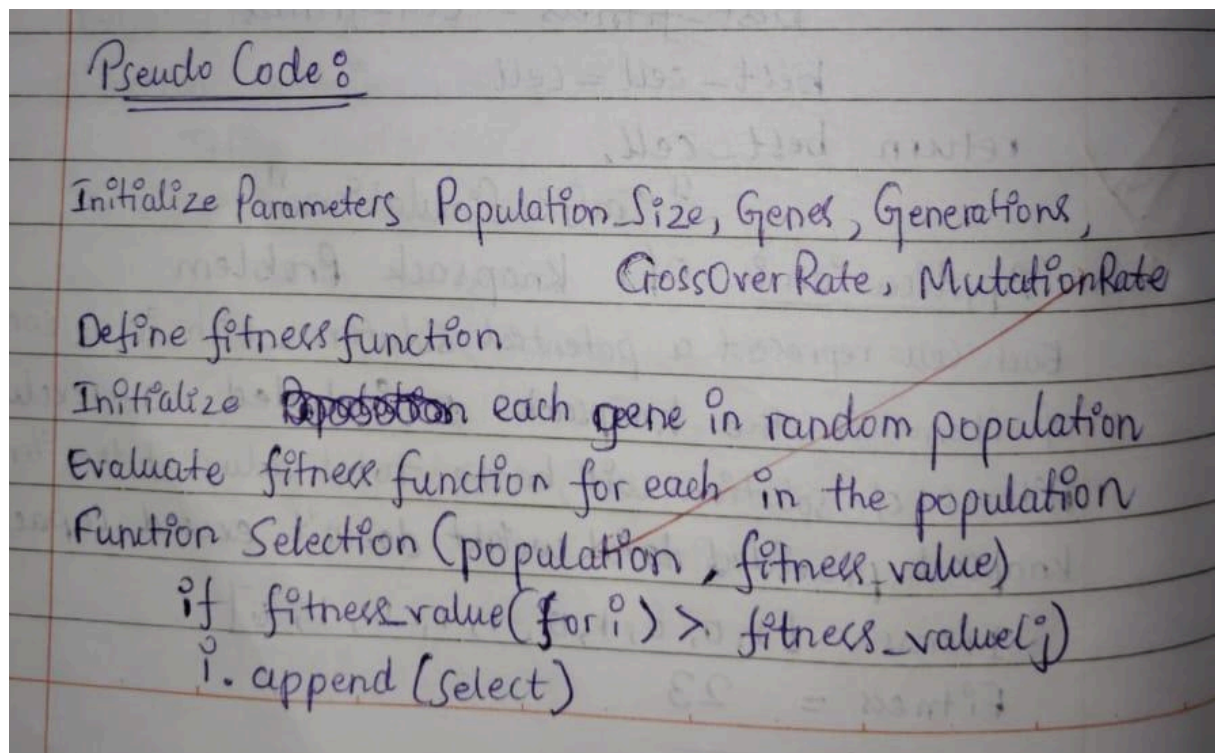 Pseudo Code:
Initialize Parameters Population_Size, Genes, Generations,
CrossOverRate, MutationRate
Define fitness function
Initialize each gene in random population
Evaluate fitness function for each in the population
Function Selection (population, fitness_value)
if fitness_value(for i) > fitness_value(j)
i. append (select)